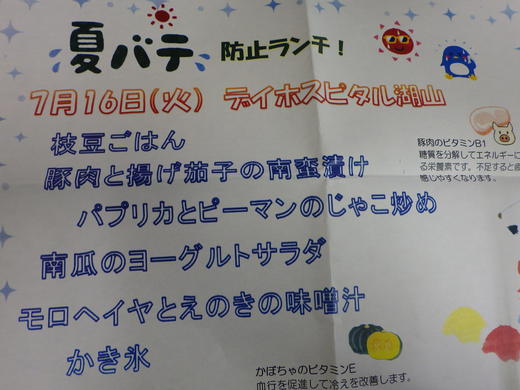 夏バテ 防止ランチ!
7月16日(火) デイホスピタル湖山
枝豆ごはん
豚肉と揚げ茄子の南蛮漬け
パプリカとピーマンのじゃこ炒め
南瓜のヨーグルトサラダ
モロヘイヤとえのきの味噌汁
かき氷
豚肉のビタミンB1
糖質を分解してエネルギーに
る栄養素です。不足すると疲
感じやすくなります。
かぼちゃのビタミンE
血行を促進して冷えを改善します。